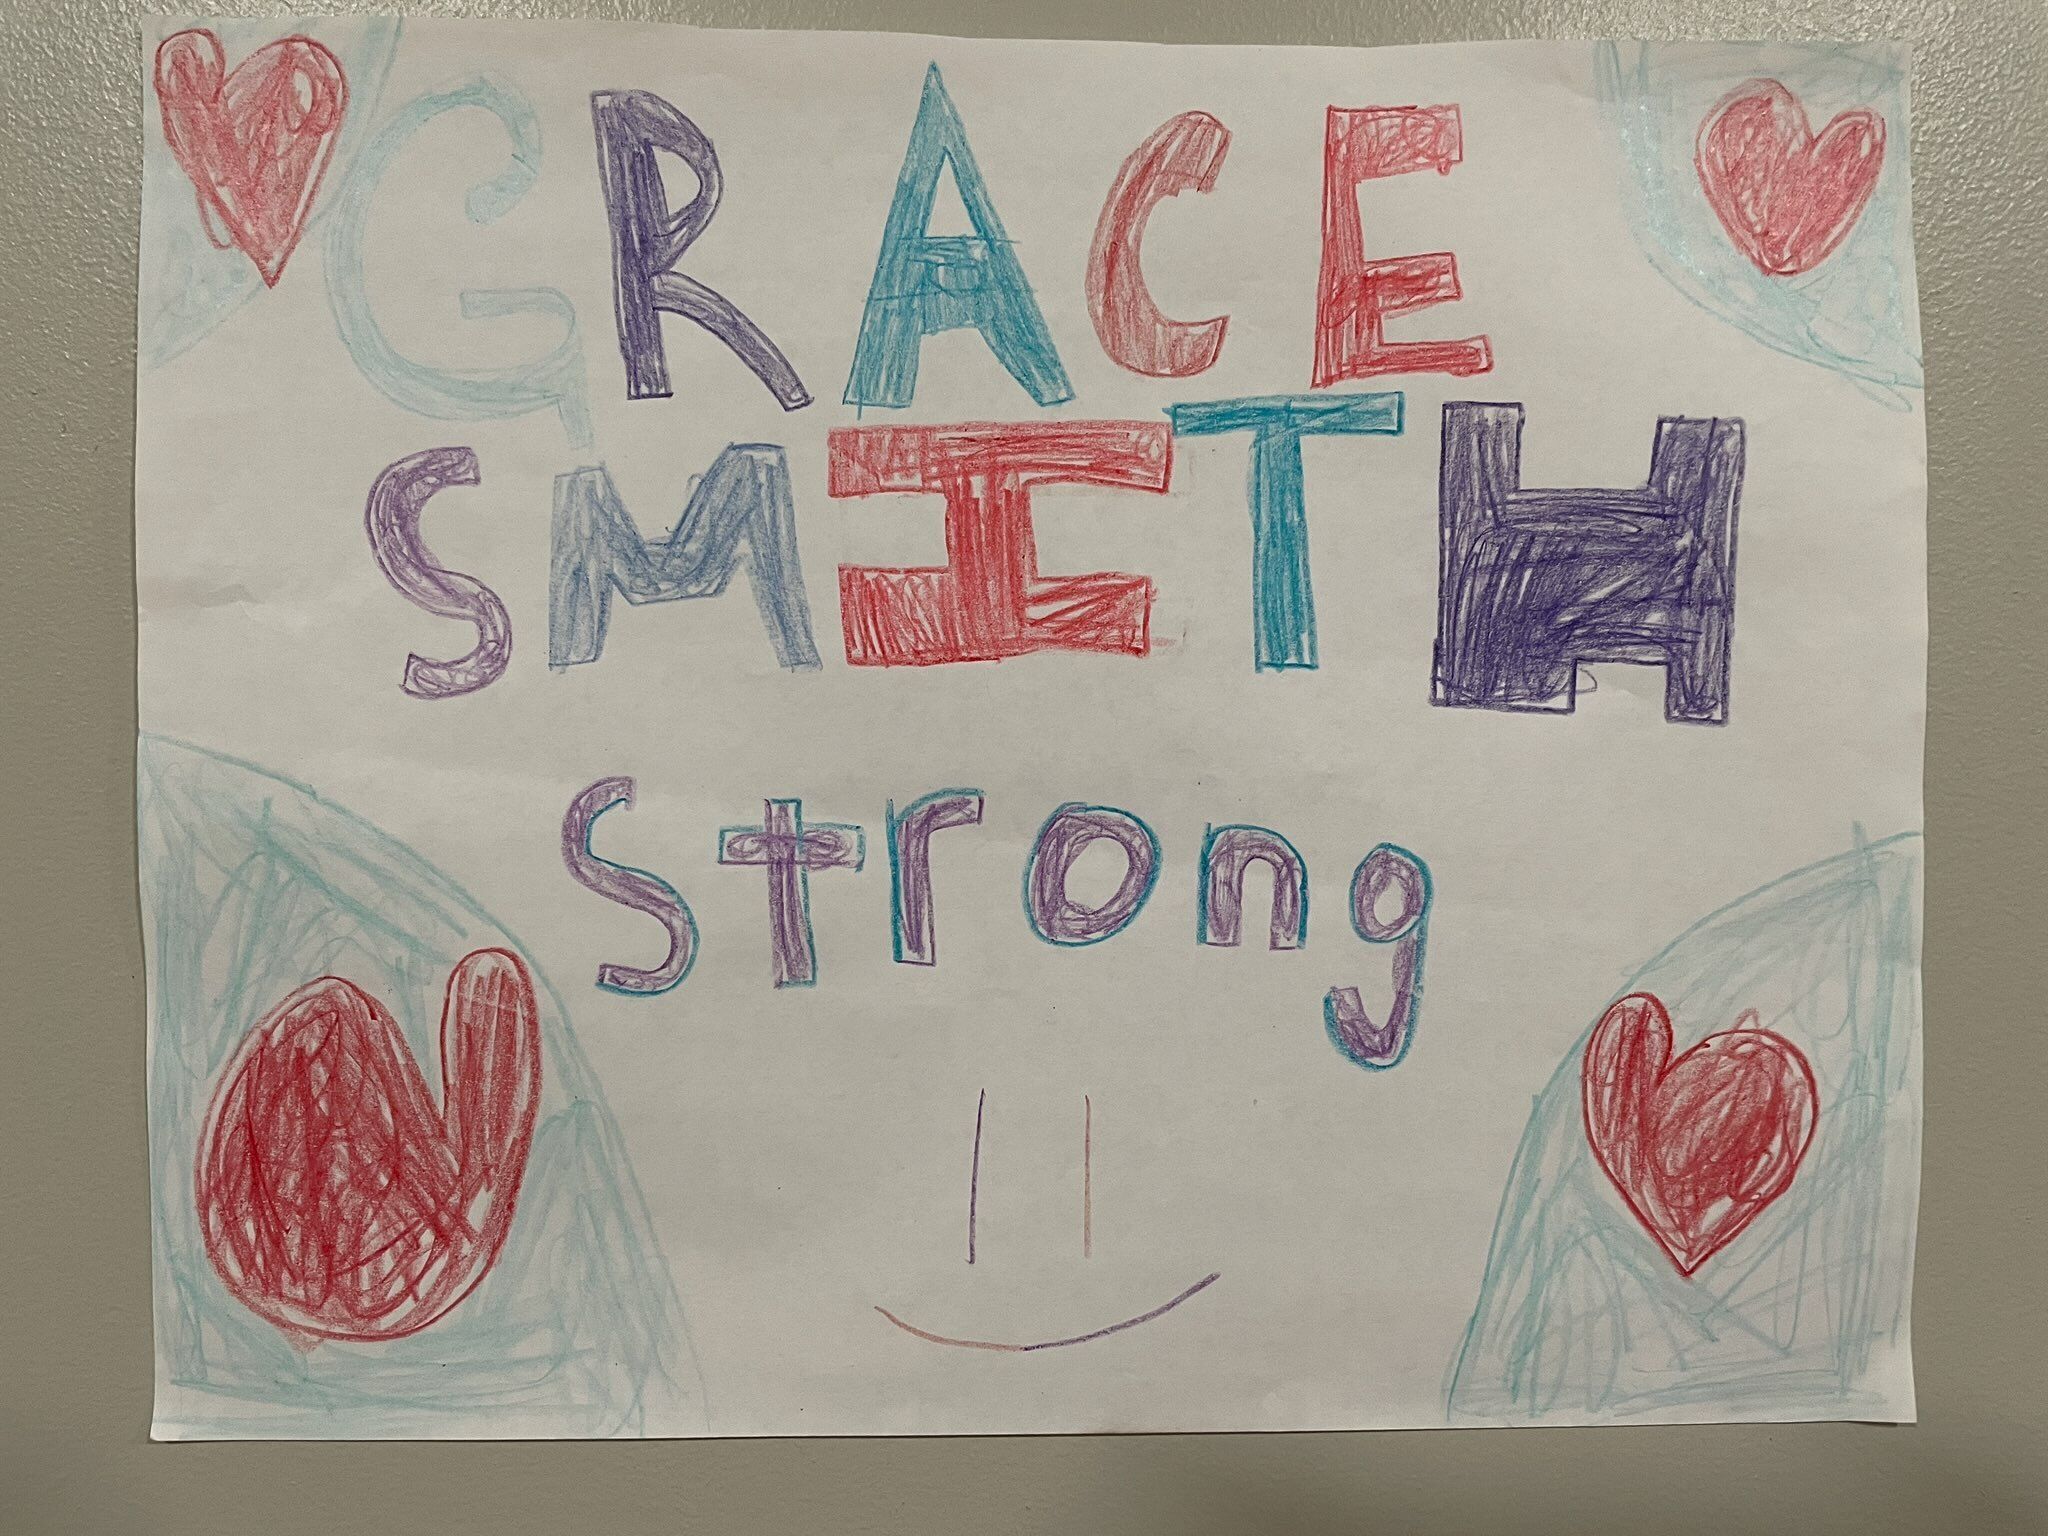 GRACE
SMITH
Strong